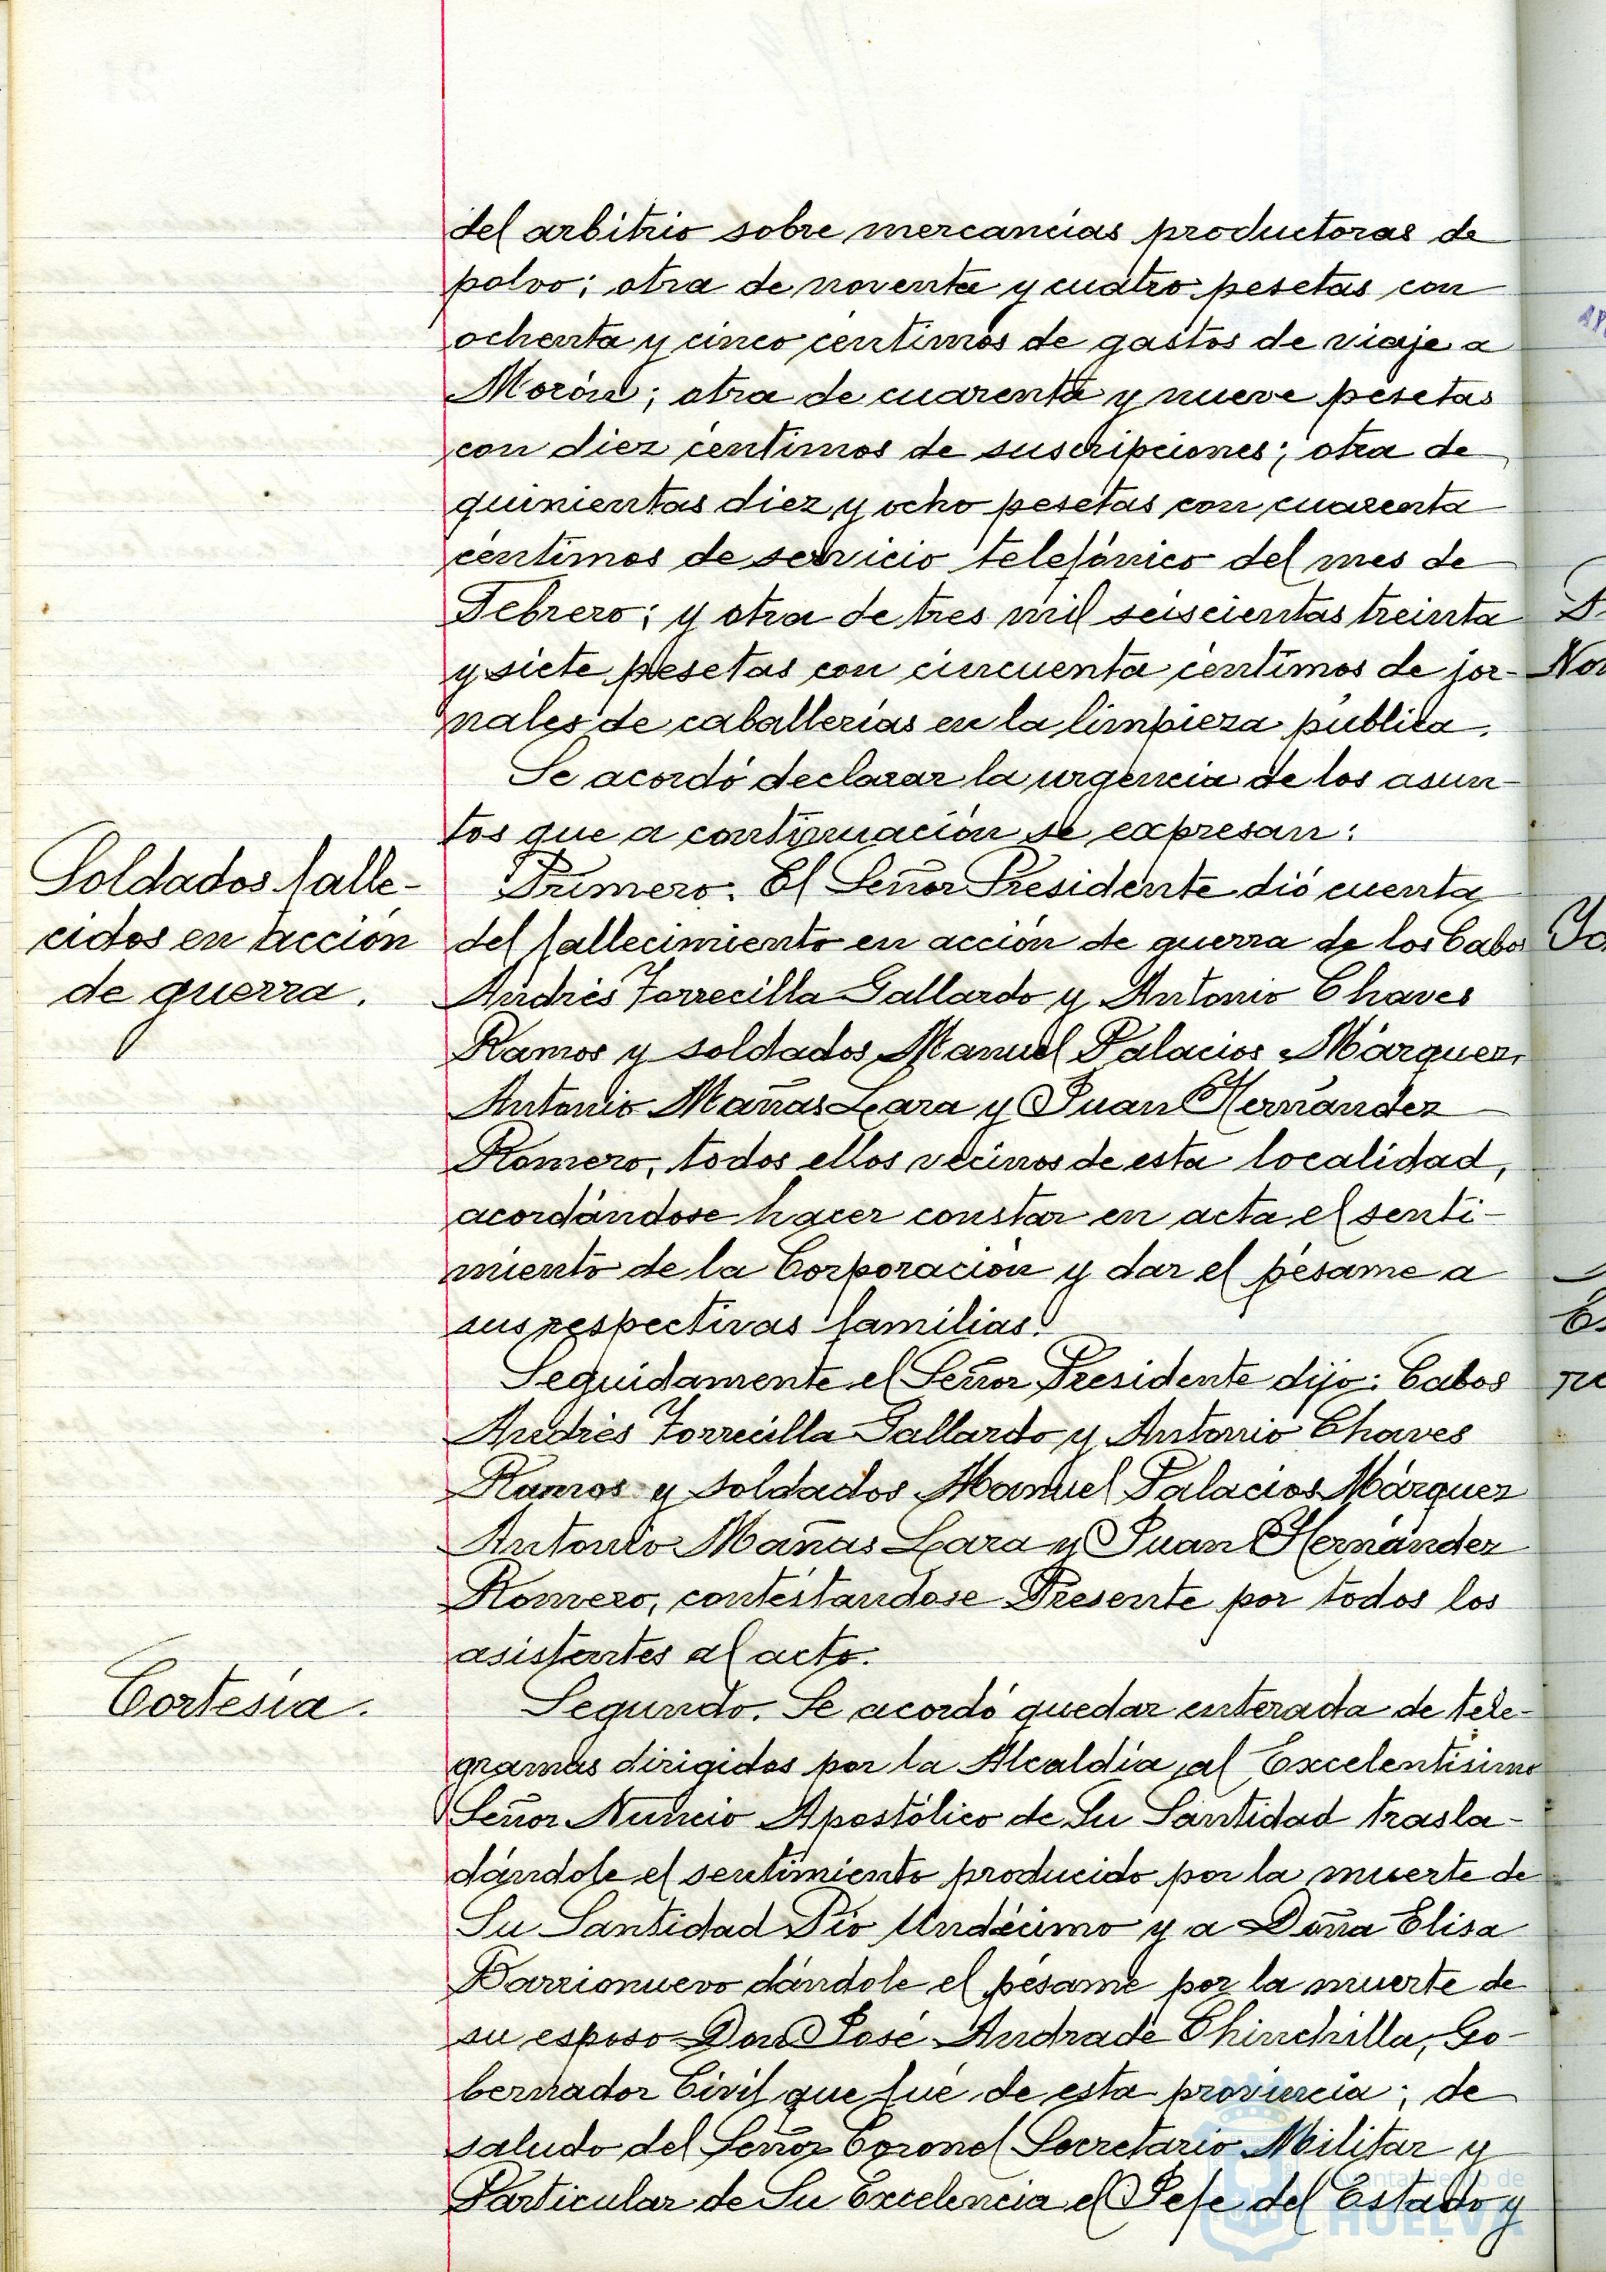 del arbitrio sobre mercancías productoras de
polvo; otra de noventa y cuatro pesetas con
ochenta y cinco céntimos de gastos de viaje a
Morón; otra de cuarenta y nueve pesetas
con diez céntimos de suscripciones; otra de
quinientas diez y ocho pesetas con cuarenta
céntimos de servicio telefónico del mes de
Febrero; y otra de tres mil seiscientas treinta
y siete pesetas con cincuenta céntimos de jor-
nales de caballerías en la limpieza pública.
Se acordó declarar la urgencia de los asun-
tos que a continuación se expresan:
Soldados falle-
cidos en acción
de guerra.
Primero. El Señor Presidente dió cuenta
del fallecimiento en acción de guerra de los Cabos
Andrés Torrecilla Gallardo y Antonio Chaves
Ramos y soldados Manuel Palacios Márquez,
Antonio Mañas Lara y Juan Hernández
Romero, todos ellos vecinos de esta localidad,
acordándose hacer constar en acta el senti-
miento de la Corporación y dar el pésame a
sus respectivas familias.
Seguidamente el Señor Presidente dijo: Cabos
Andrés Torrecilla Gallardo y Antonio Chaves
Ramos y soldados Manuel Palacios Márquez
Antonio Mañas Lara y Juan Hernández
Romero, contestandose Presente por todos los
asistentes al acto.
Cortesía.
Segundo. Se acordó quedar enterada de tele-
gramas dirigidos por la Alcaldía al Excelentísimo
Señor Nuncio Apostólico de Su Santidad trasla-
dándole el sentimiento producido por la muerte de
Su Santidad Pío Undécimo y a Doña Elisa
Barrionuevo dándole el pésame por la muerte de
su esposo Don José Andrade Chinchilla, Go-
bernador Civil que fué de esta provincia; de
saludo del Señor Coronel Secretario Militar y
Particular de Su Excelencia el Jefe del Estado y
Ayuntamiento de
HUELVA